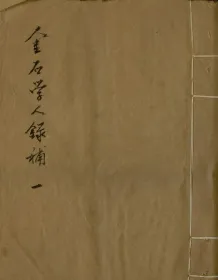 金石学人錄補 一